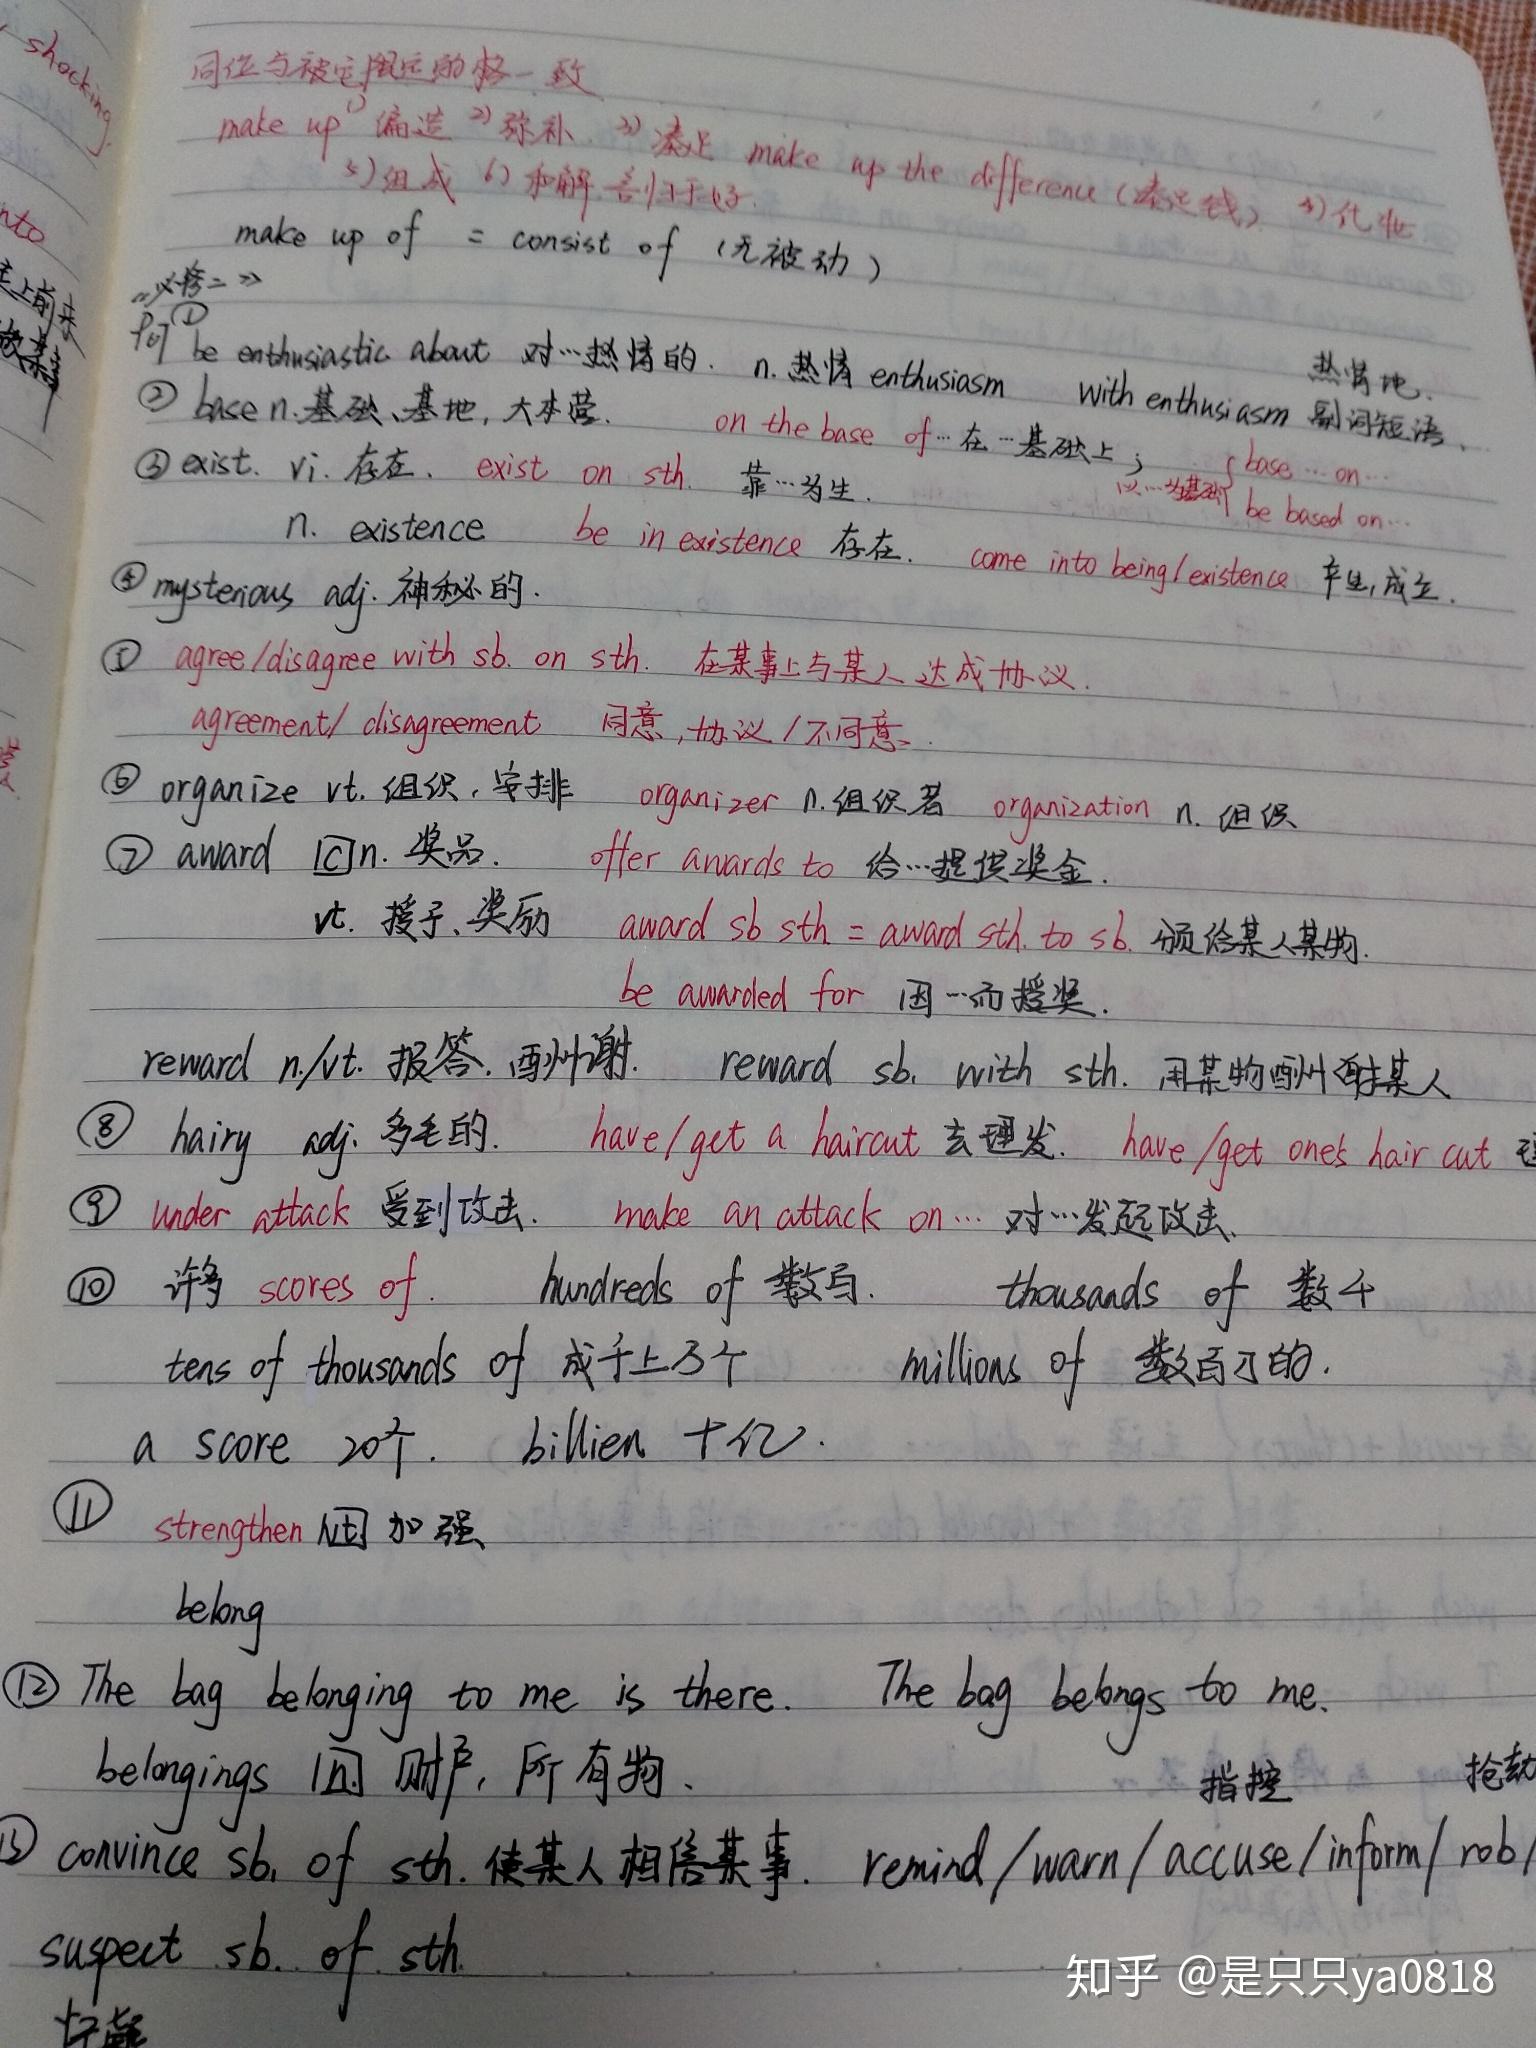 shocking
同位与被定限定的格一致
make up 1) 偏造 2) 弥补 3) 凑足 make up the difference (凑足钱) 4) 化妆
5) 组成 6) 和解.言归于好.
nto
make up of = consist of (无被动)
《必修二》
P01 ① be enthusiastic about 对…热情的. n. 热情 enthusiasm with enthusiasm 副词短语.
热情地.
② base n. 基础、基地, 大本营. on the base of … 在…基础上; 以…为基础 { base … on …
be based on …
③ exist. vi. 存在. exist on sth. 靠…为生.
n. existence be in existence 存在. come into being/existence 产生, 成立.
④ mysterious adj. 神秘的.
⑤ agree/disagree with sb. on sth. 在某事上与某人达成协议.
agreement/ disagreement 同意, 协议 / 不同意.
⑥ organize vt. 组织, 安排 organizer n. 组织者 organization n. 组织
⑦ award [C] n. 奖品. offer awards to 给…提供奖金.
vt. 授予、奖励 award sb sth = award sth. to sb. 颁给某人某物.
be awarded for 因…而授奖.
reward n./vt. 报答. 酬谢. reward sb. with sth. 用某物酬谢某人
⑧ hairy adj. 多毛的. have/get a haircut 去理发. have/get one's hair cut
⑨ under attack 受到攻击. make an attack on … 对…发起攻击.
⑩ 许多 scores of. hundreds of 数百. thousands of 数千
tens of thousands of 成千上万个 millions of 数百万的.
a score 20个. billien 十亿.
⑪ strengthen vt 加强
belong
⑫ The bag belonging to me is there. The bag belongs to me.
belongings n. 财产, 所有物.
指控 抢劫
⑬ convince sb. of sth. 使某人相信某事. remind/warn/accuse/inform/rob/
suspect sb. of sth.
知乎 @是只只ya0818